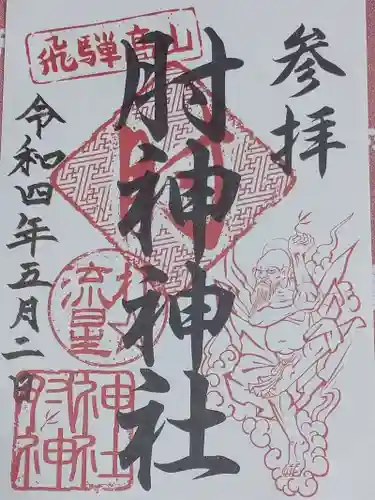 飛騨高山
参拝
肘神神社
令和四年五月二日
流星
神社
肘神